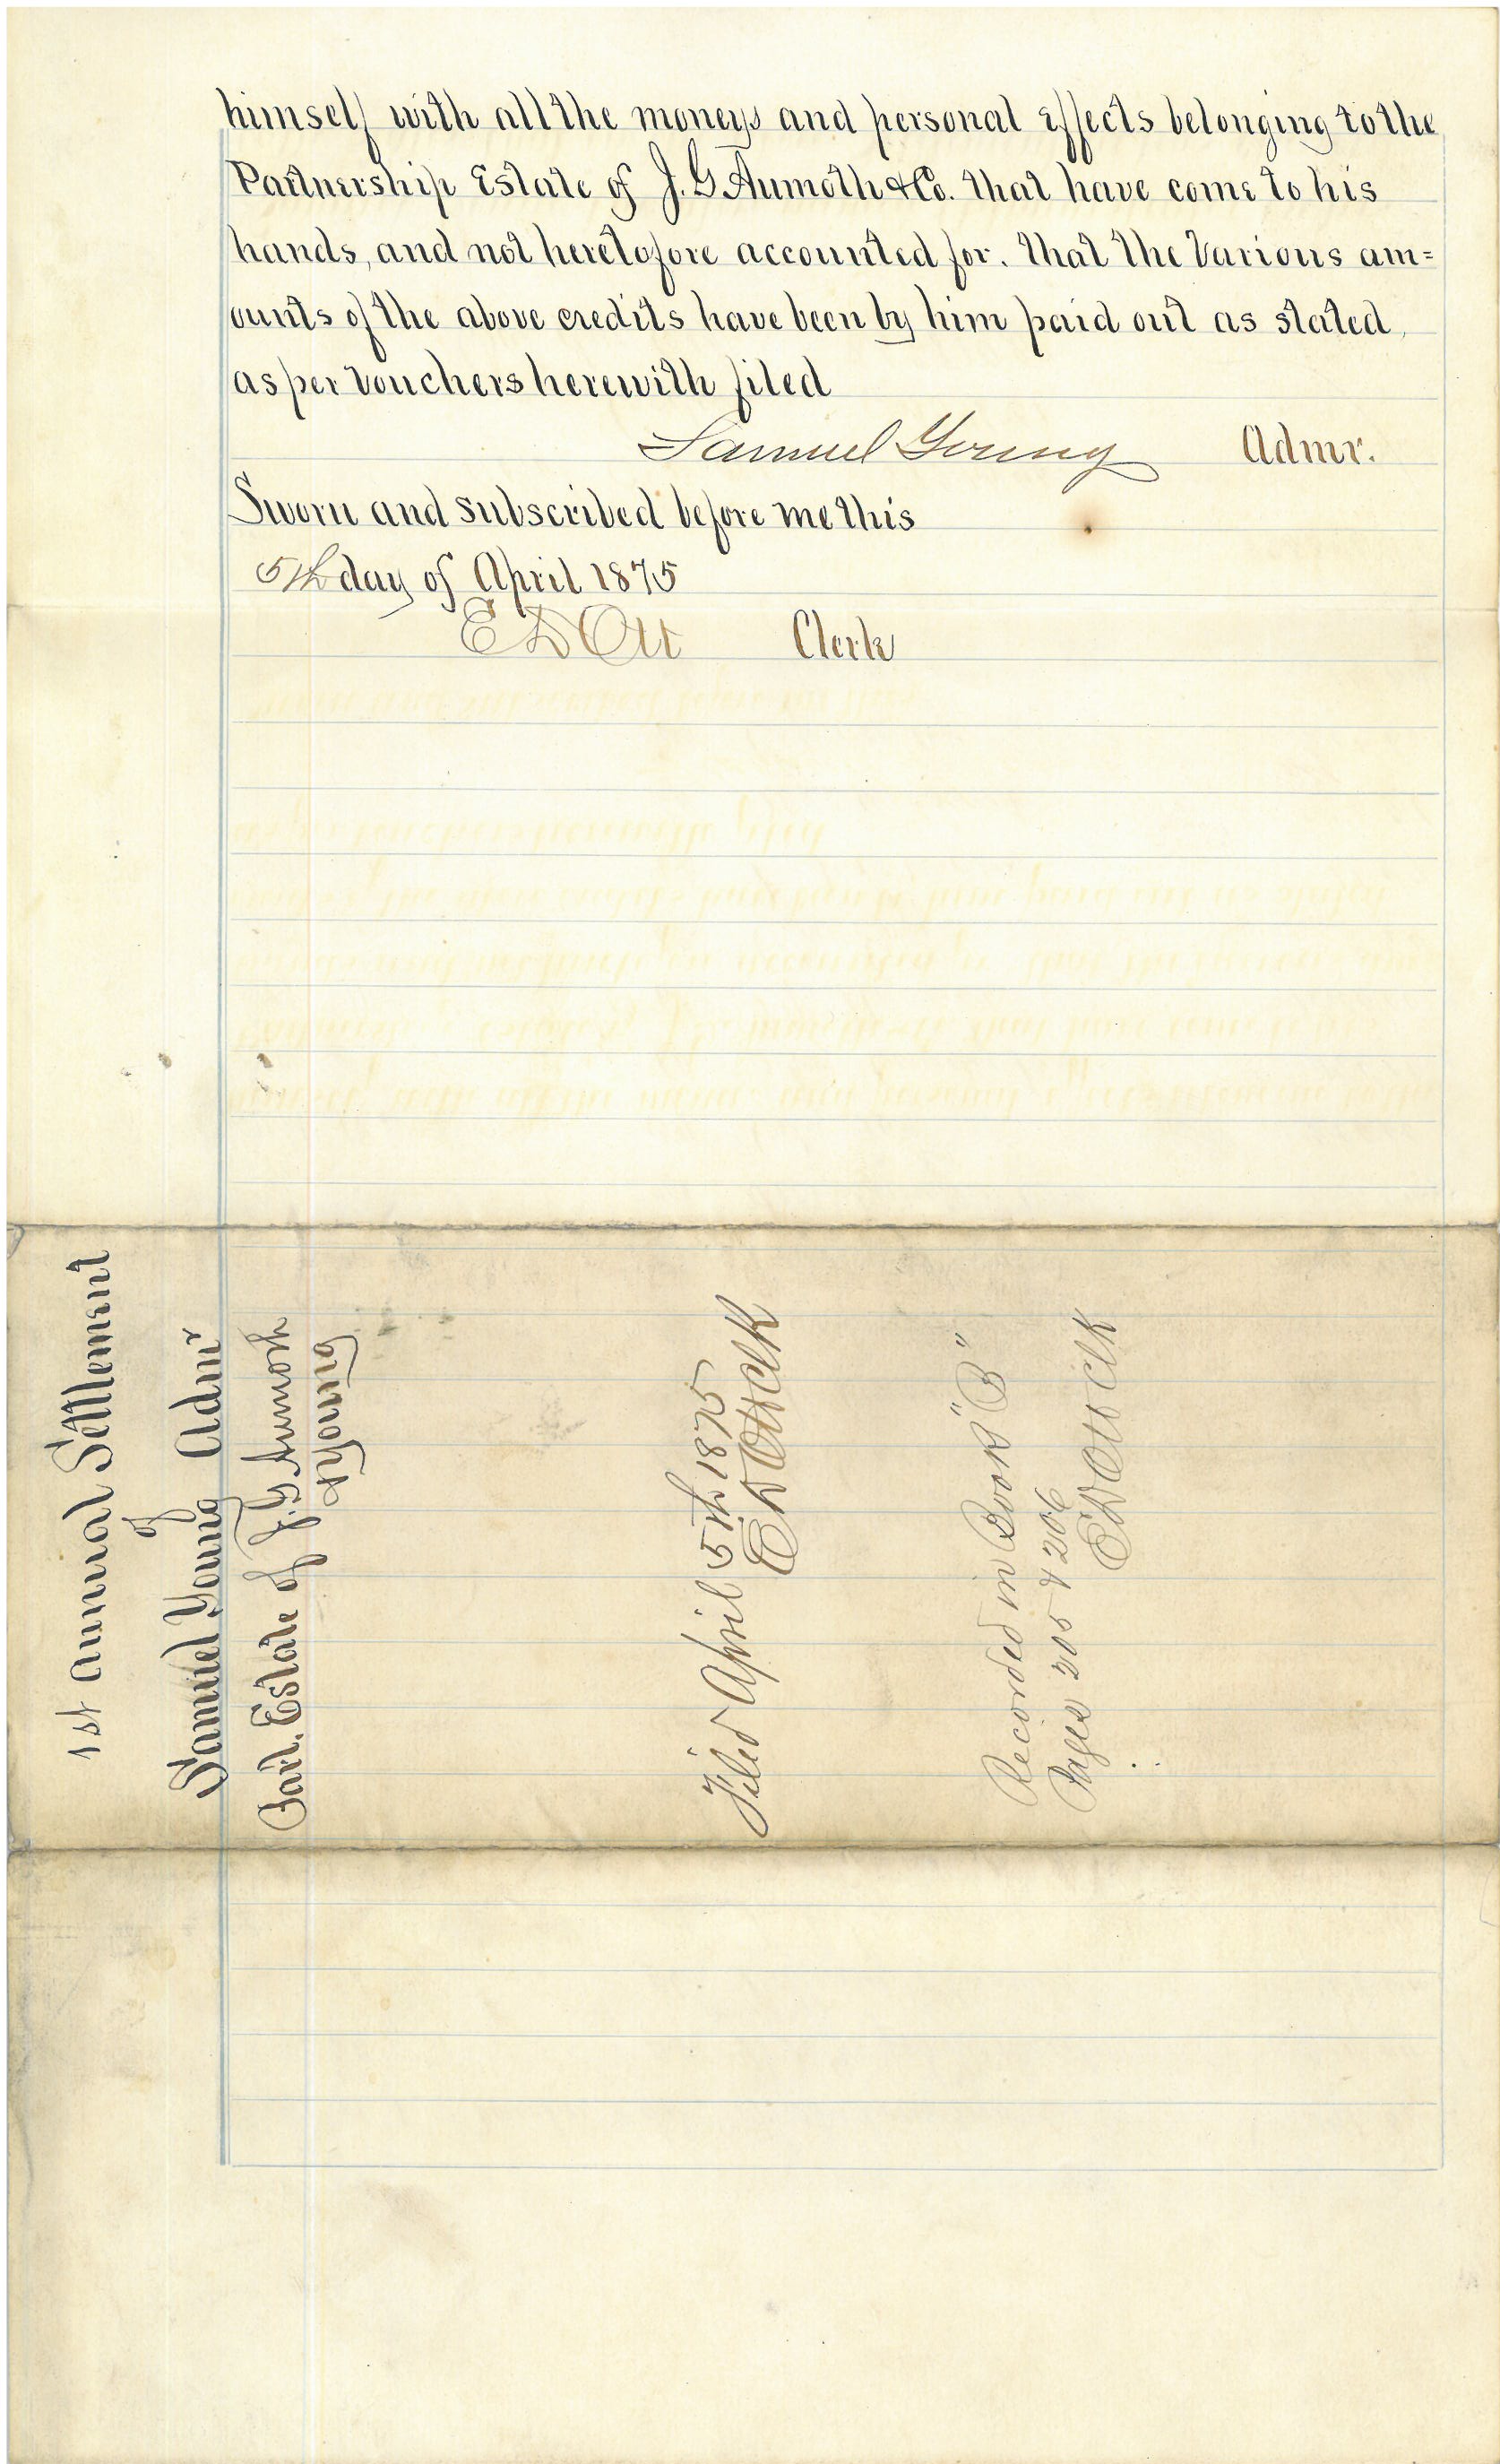 himself with all the moneys and personal effects belonging to the
Partnership Estate of J. G. Aumoth & Co. that have come to his
hands, and not heretofore accounted for. That the Various am=
ounts of the above credits have been by him paid out as stated,
as per Vouchers herewith filed
Samuel Young Admr.
Sworn and subscribed before me this
5th day of April 1875
E D Ott Clerk
1st Annual Settlement
of
Samuel Young Admr
Part. Estate of J. G. Aumoth
& Young
Filed April 5th 1875
E D Ott Clk
Recorded in Book "B"
Pages 205 & 206
E D Ott Clk